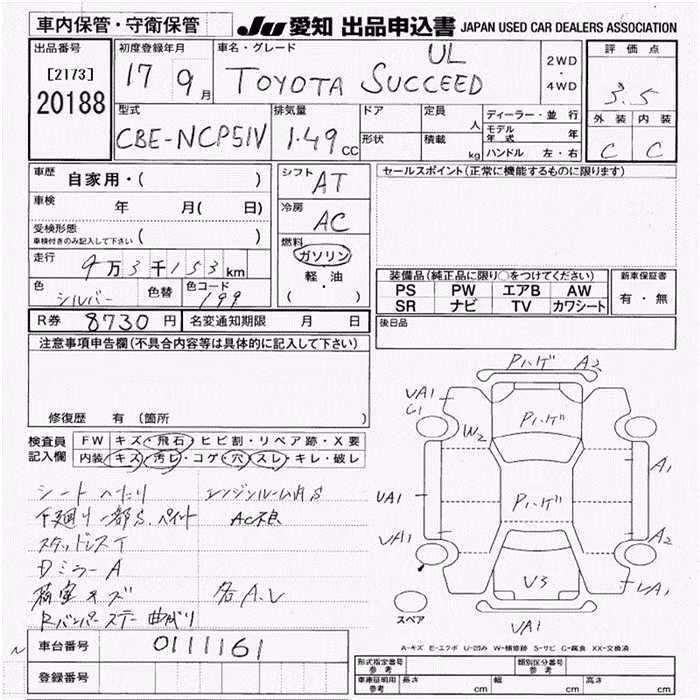 車内保管・守衛保管
JU 愛知 出品申込書 JAPAN USED CAR DEALERS ASSOCIATION
出品番号 初度登録年月 車名・グレード UL 2WD・4WD 評価点
[2173]
20188
17 9月 TOYOTA SUCCEED 3.5
型式 排気量 ドア 定員 人 ディーラー・並行 外装 内装
CBE-NCP51V 1.49cc 形状 積載 kg モデル年式 年 C C
ハンドル 左・右
車歴 自家用・( ) シフト AT セールスポイント(正常に機能するものに限ります)
車検 年 月( 日) 冷房 AC
受検形態
車検付きのみ記入して下さい ( ) 燃料 ガソリン
走行 9万3千153km 軽・油
色 シルバー 色替 色コード 199 ( ・ )
装備品(純正品に限り○をつけてください) 新車保証書
PS PW エアB AW 有・無
SR ナビ TV カワシート
R券 8730円 名変通知期限 月 日 後日品
注意事項申告欄(不具合内容等は具体的に記入して下さい)
修復歴 有 (箇所 )
検査員記入欄 FW キズ・飛石・ヒビ割・リペア跡・X要
内装 キズ・汚レ・コゲ・穴・スレ・キレ・破レ
シートへたり エンジンルーム内S
下廻り一部S、ペイント AC不良
スタッドレスT
DミラーA
荷室キズ 各A.U
Rバンパーステー曲がり
Pハゲ A2
UA1
C1
Pハゲ
W2
A1
UA1
Pハゲ
UA1
A2
V3
UA1
スペア
UA1
A-キズ E-エクボ U-凹み W-補修跡 S-サビ C-腐食 XX-交換済
車台番号 0111161
登録番号
形式指定番号 参考 類別区分番号 参考
車庫証明用 参考 長さ cm 幅 cm 高さ cm